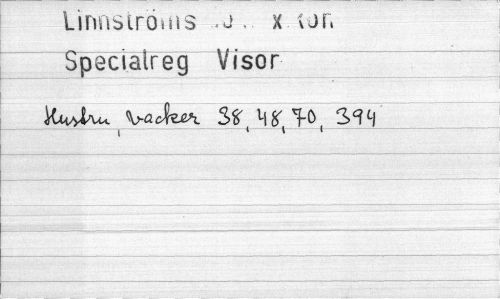 Linnströms
Specialreg Visor
Hustru, vacker 38, 48, 70, 394